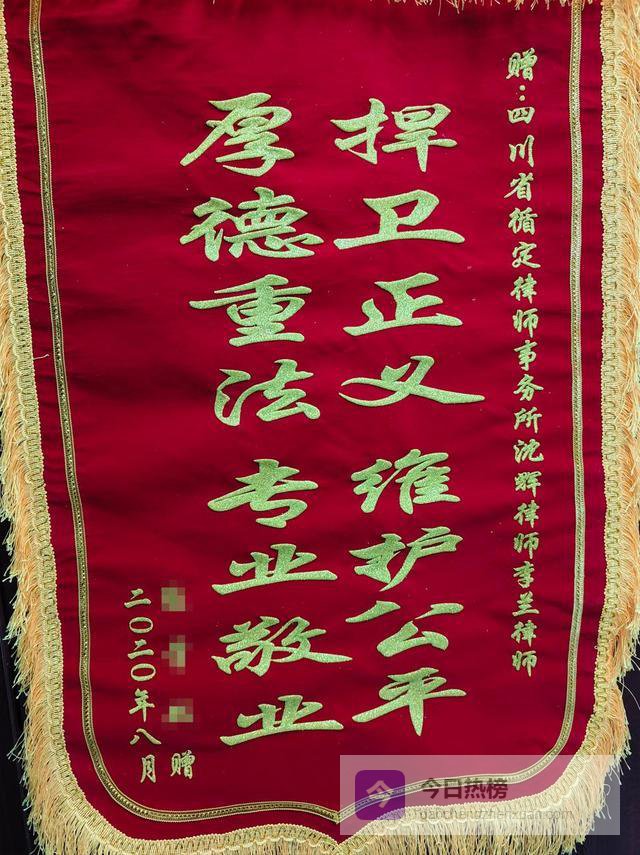 赠：四川省循定律师事务所沈辉律师李兰律师
捍卫正义 维护公平
厚德重法 专业敬业
赠
二〇二〇年八月
今日热榜